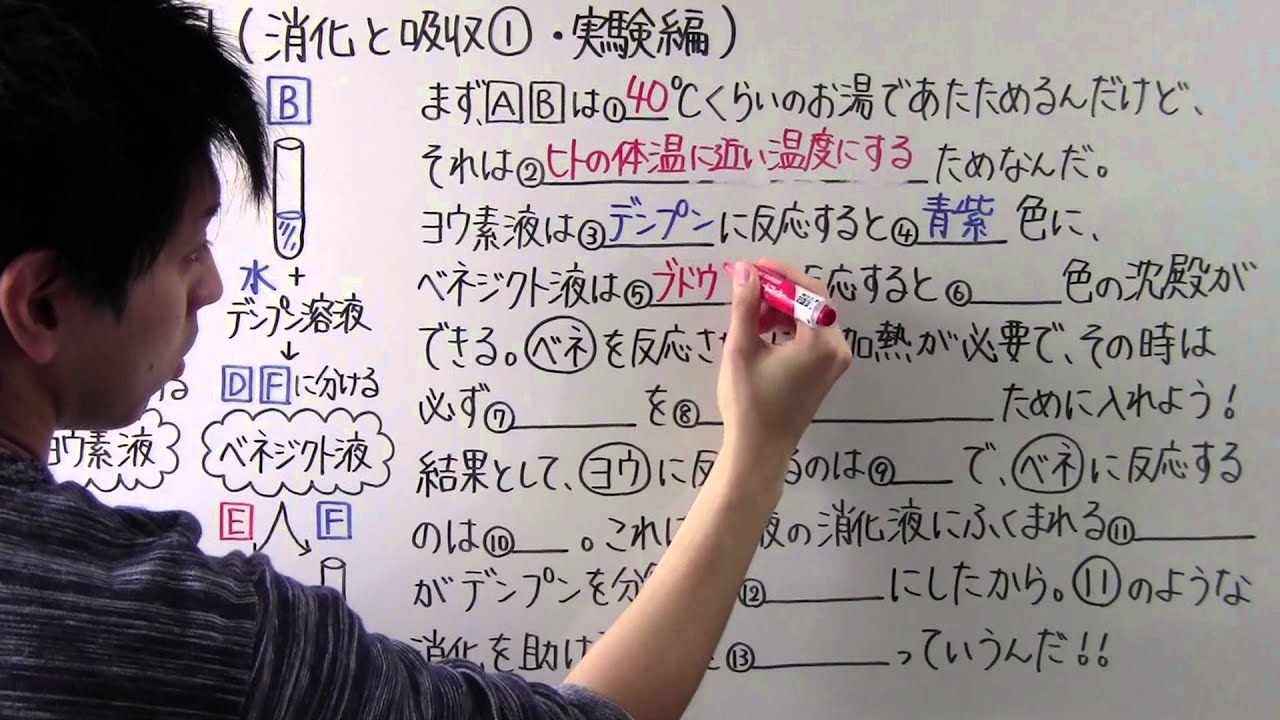 (消化と吸収①・実験編)
B
水 +
デンプン溶液
↓
D Fに分ける
ヨウ素液
ベネジクト液
E F
まず、A Bは①40℃くらいのお湯であたためるんだけど、
それは②ヒトの体温に近い温度にする ためなんだ。
ヨウ素液は③デンプンに反応すると④青紫 色に、
ベネジクト液は⑤ブドウ 応すると⑥ 色の沈殿が
できる。ベネを反応さ 加熱が必要で、その時は
必ず⑦ を⑧ ために入れよう!
結果として、ヨウに反 るのは⑨ で、ベネに反応する
のは⑩ 。これは 液の消化液にふくまれる⑪
がデンプンを分 ⑫ にしたから。⑪のような
消化を助け ⑬ っていうんだ!!